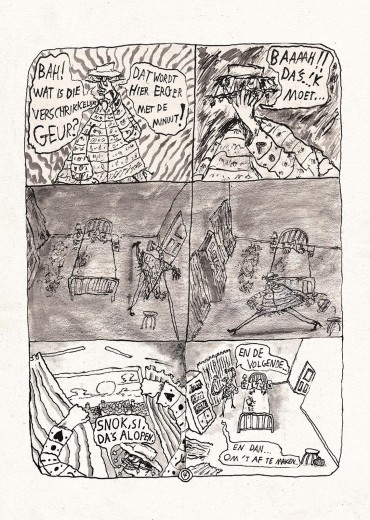 BAH!
WAT IS DIE
VERSCHRIKKELIJKE
GEUR?
DAT WORDT
HIER ERGER
MET DE
MINUUT!
BAAAAH!!
DA'S..'K
MOET...
SNOK, SI,
DA'S ALOPEN.
EN DE
VOLGENDE.
EN DAN...
OM 'T AF TE MAKEN..